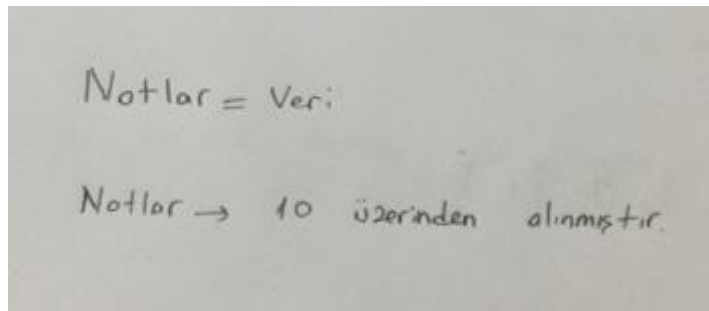 Notlar = Veri
Notlar → 10 üzerinden alınmıştır.